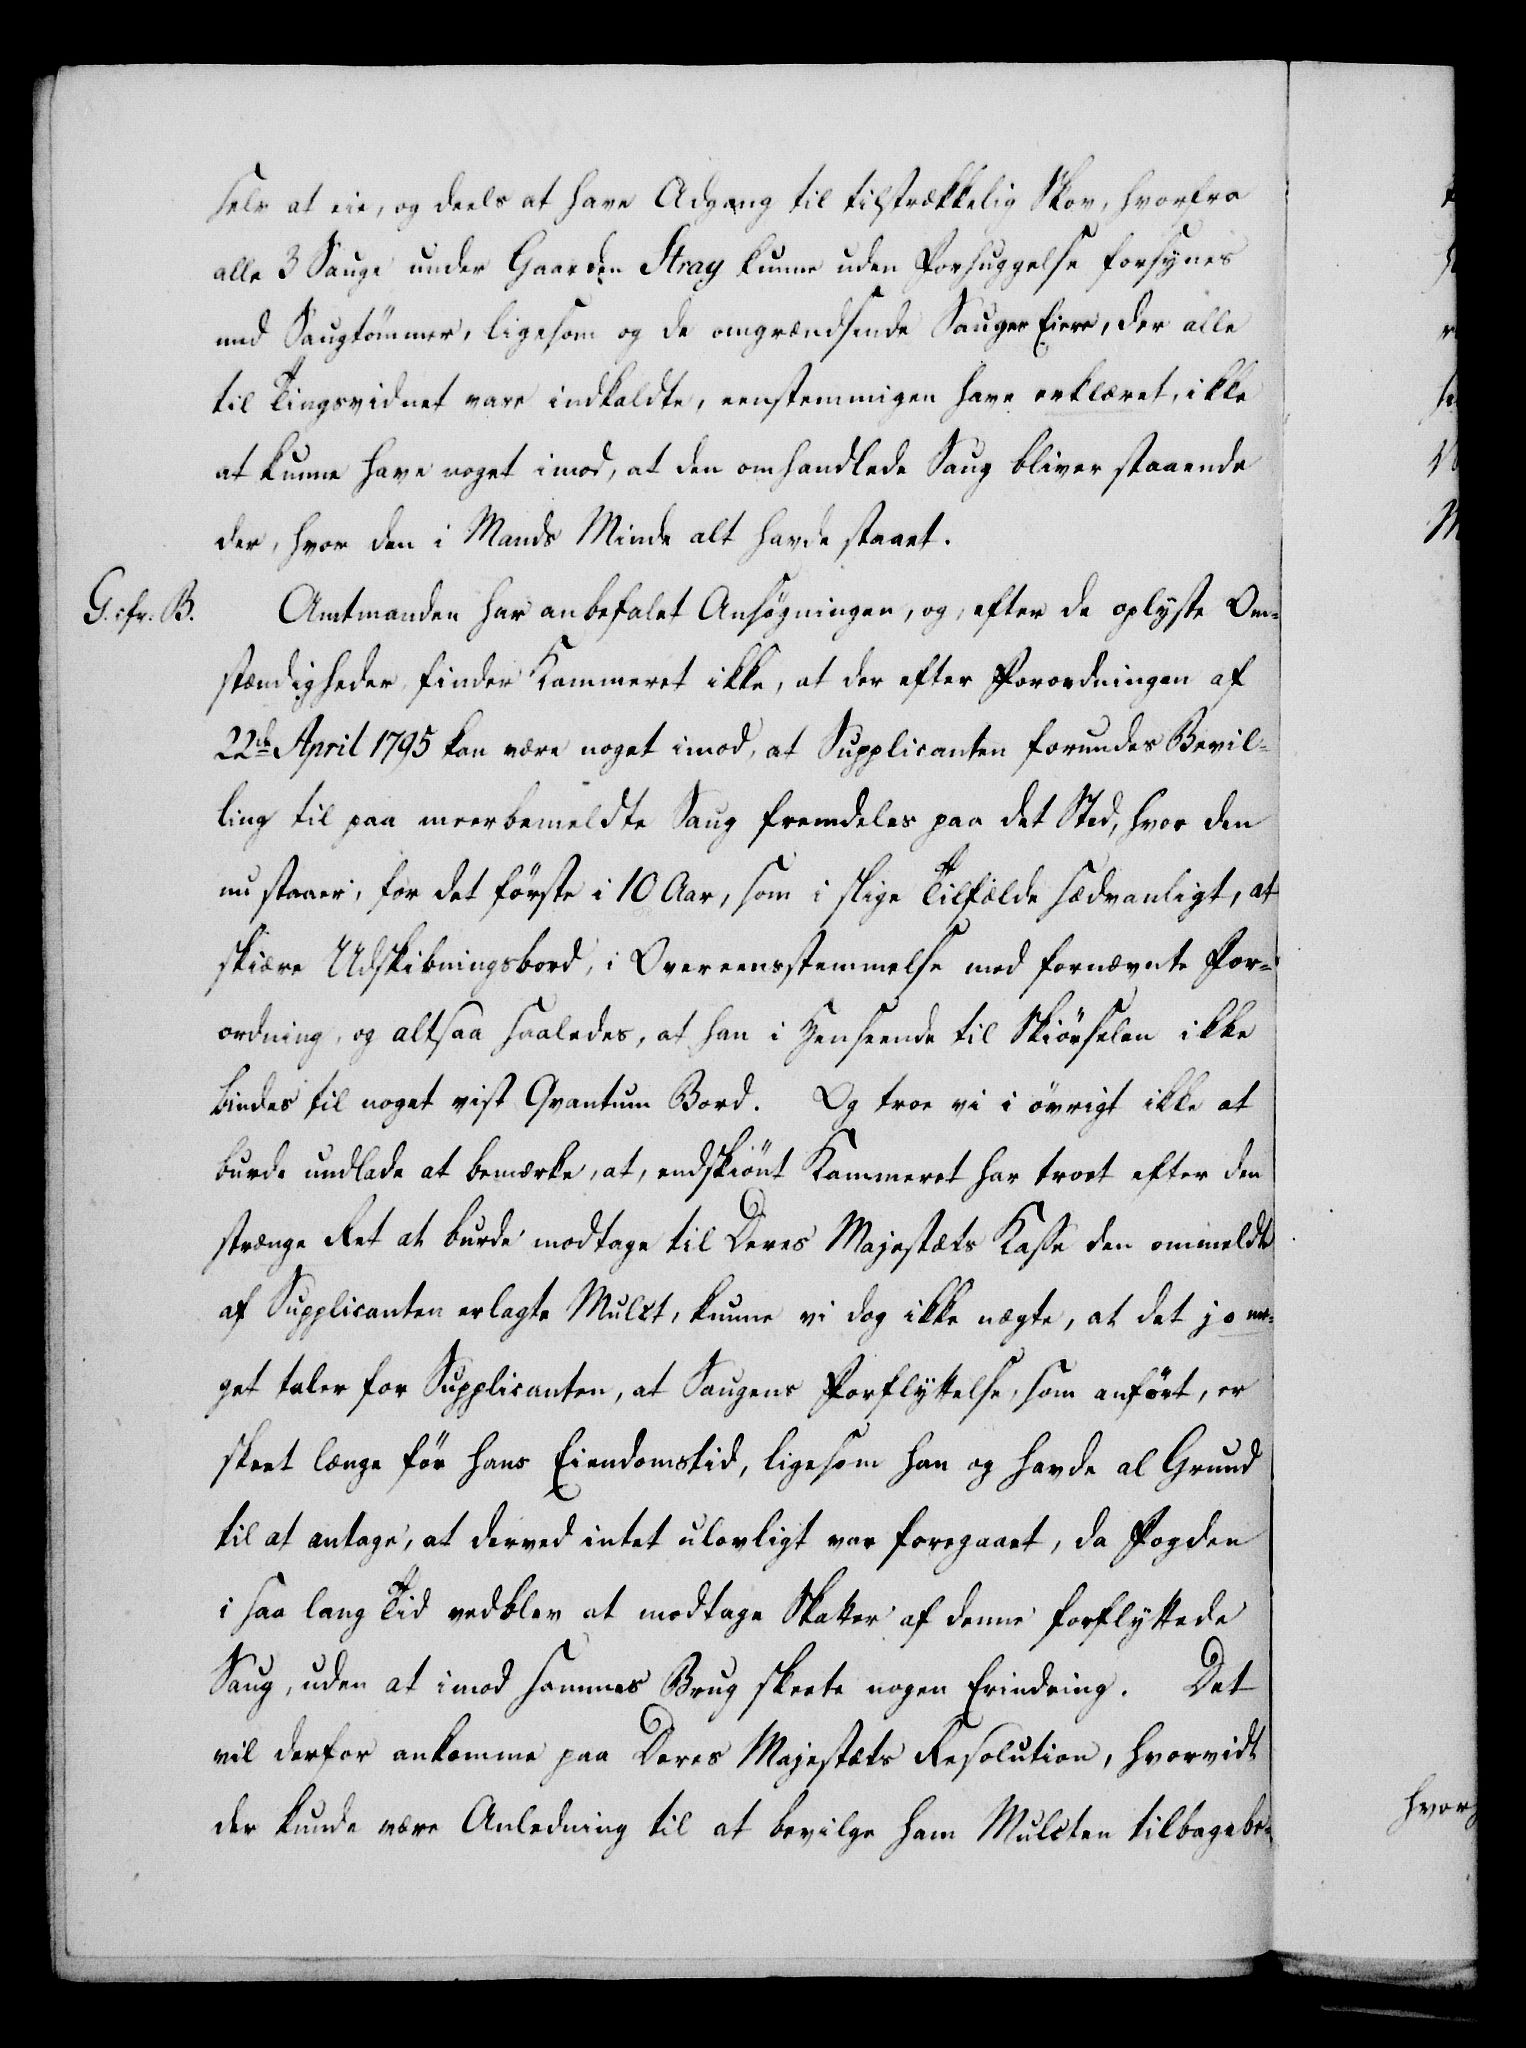 selv at eie, og deels at have Adgang til tilstrækkelig Skov, hvorfra
alle 3 Sauge under Gaarden Stray kunne uden Forhuggelse forsynes
med Saugtömmer, ligesom og de omgrændsende Sauger Eiere, der alle
til Tingsvidnet vare indkaldte, eenstemmigen have erklæret, ikke
at kunne have noget imod, at den omhandlede Saug bliver staaende
der, hvor den i Mands Minde alt havde staaet.
G. cfr. B. Amtmanden har anbefalet Ansøgningen, og, efter de oplyste Om-
stændigheder, finder Kammeret ikke, at der efter Forordningen af
22de April 1795 kan være noget imod, at Supplicanten forundes Bevil-
ling til paa meerbemeldte Saug fremdeles paa det Sted, hvor den
nu staaer, for det förste i 10 Aar, som i slige Tilfælde sædvanligt, at
skiære Udskibningsbord, i Overeensstemmelse med fornævnte For-
ordning, og altsaa saaledes, at han i Henseende til Skiörselen ikke
bindes til noget vist Qvantum Bord. Og troe vi i övrigt ikke at
burde undlade at bemærke, at, endskiönt Kammeret har troet efter den
strænge Ret at burde modtage til Deres Majestæts Kasse den ommeldte
af Supplicanten erlagte Mulct, kunne vi dog ikke nægte, at det jo me-
get taler for Supplicanten, at Saugens Forflyttelse, som anfört, er
skeet længe för hans Eiendomstid, ligesom han og havde al Grund
til at antage, at derved intet ulovligt var foregaaet, da Fogden
i saa lang Tid vedblev at modtage Skatter af denne forflyttede
Saug, uden at imod sammes Brug skeete nogen Erindring. Det
vil derfor ankomme paa Deres Majestæts Resolution, hvorvidt
der kunde være Anledning til at bevilge ham Mulcten tilbagebe-